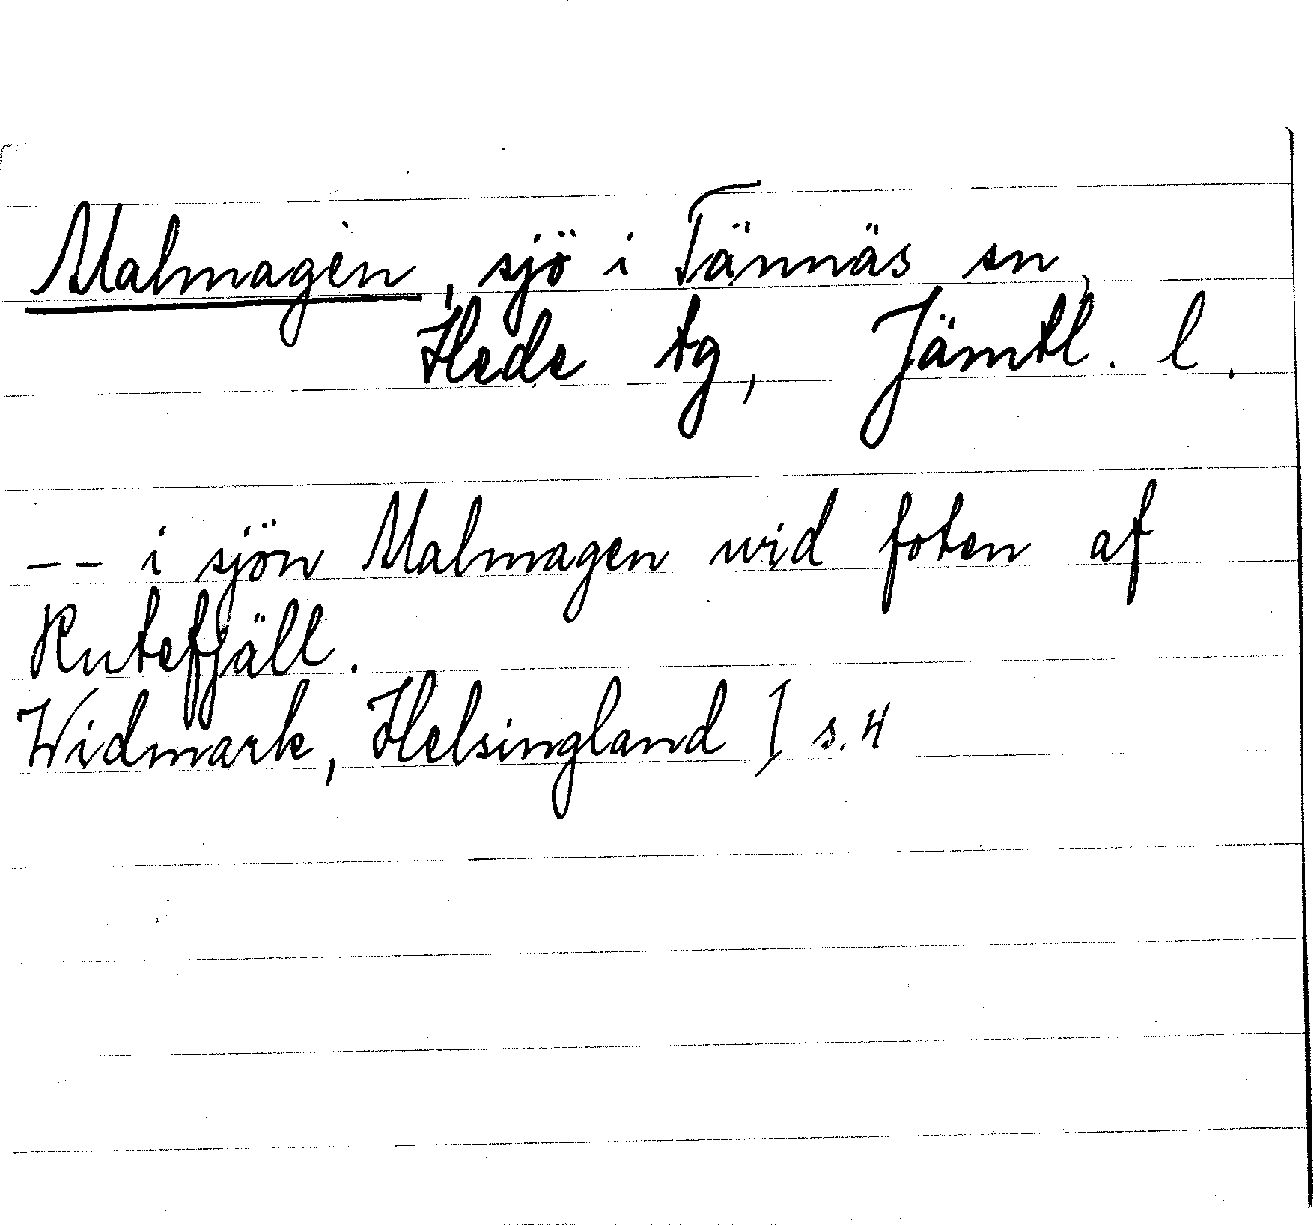 Malmagen, sjö i Tännäs sn,
Hede tg, Jämtl. l.
-- i sjön Malmagen wid foten af
Rutefjäll.
Widmark, Helsingland I s. 4